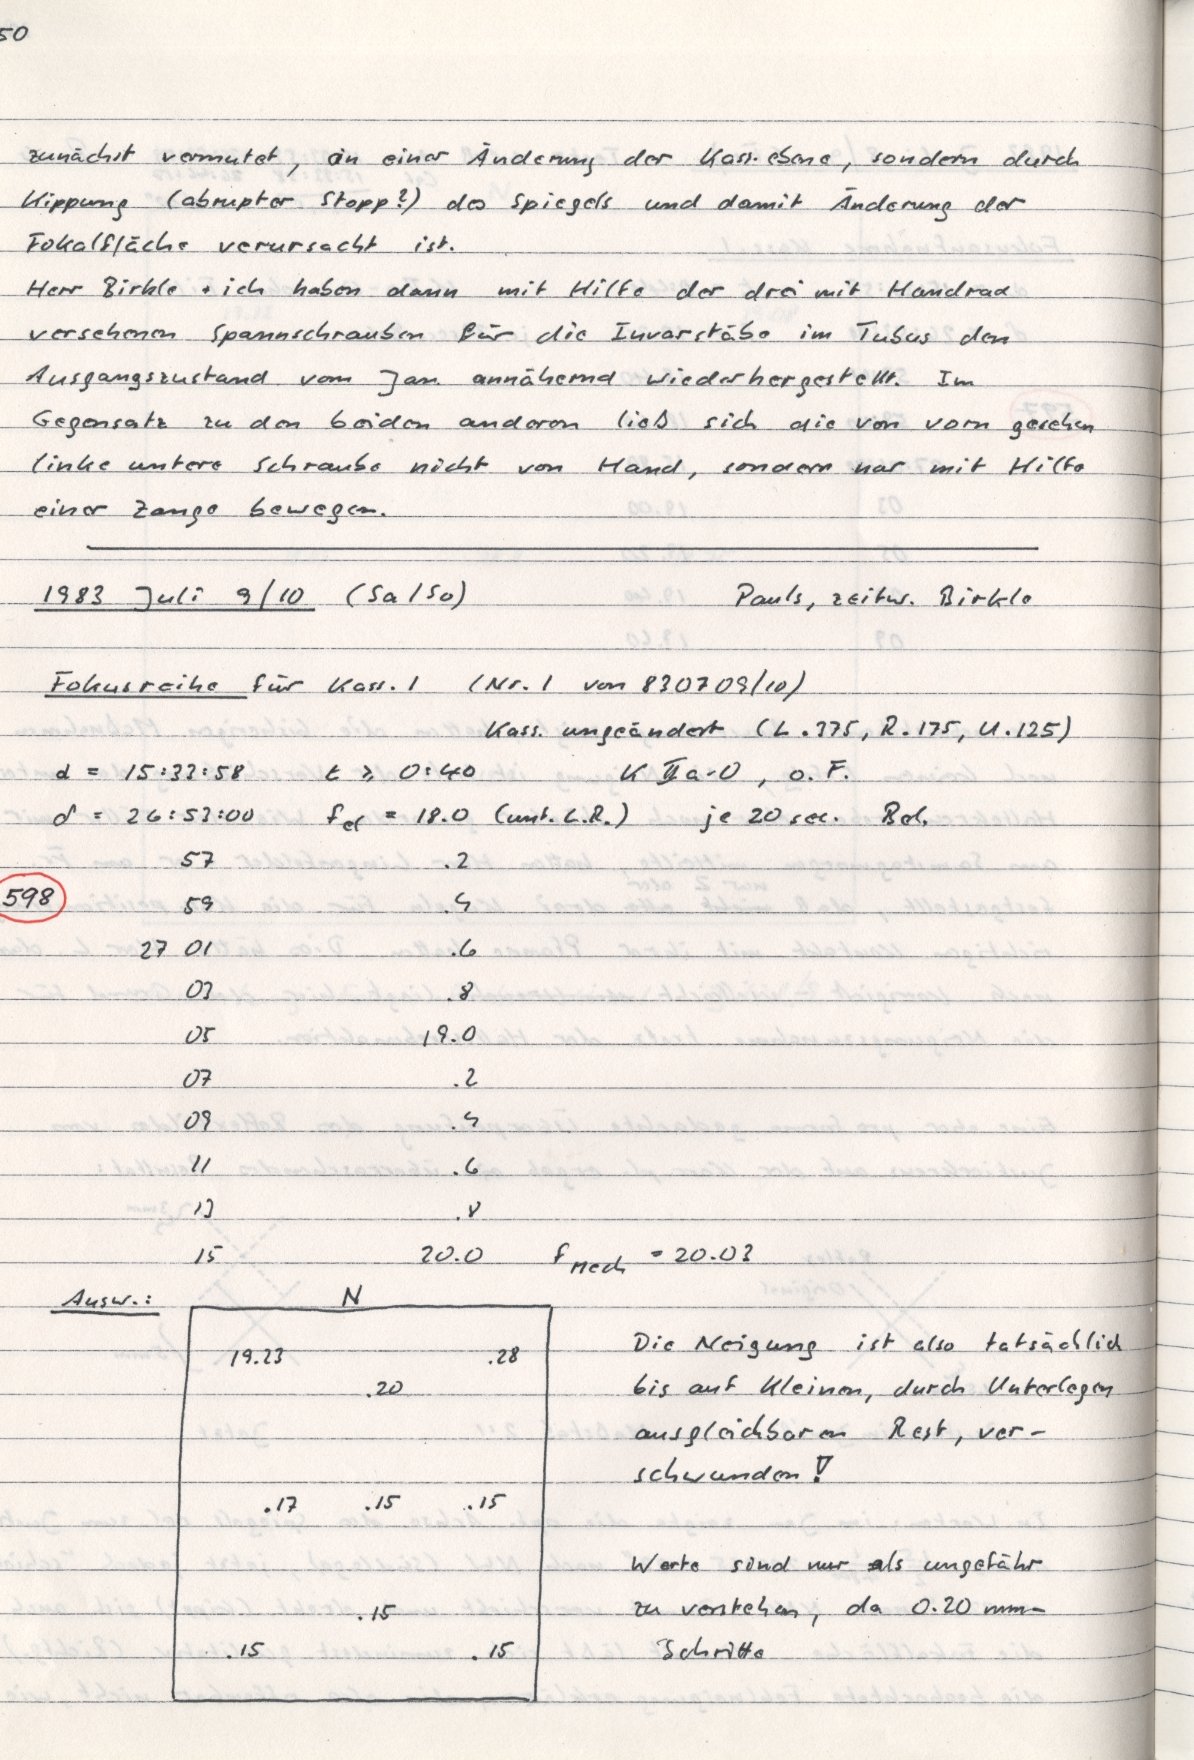 50
zunächst vermutet, in einer Änderung der Kass.ebene, sondern durch
Kippung (abrupter Stopp?) des Spiegels und damit Änderung der
Fokalfläche verursacht ist.
Herr Birkle + ich haben dann mit Hilfe der drei mit Handrad
versehenen Spannschrauben für die Invarstäbe im Tubus den
Ausgangszustand vom Jan. annähernd wiederhergestellt. Im
Gegensatz zu den beiden anderen ließ sich die von vorn gesehen
linke untere Schraube nicht von Hand, sondern nur mit Hilfe
einer Zange bewegen.
1983 Juli 9/10 (Sa/So) Pauls, zeitw. Birkle
Fokusreihe für Kass. 1 (Nr. 1 von 830709/10)
Kass. ungeändert (L .375, R .175, U .125)
α = 15:33:58 t ≥ 0:40 K IIa-O, o. F.
δ = 26:53:00 f el = 18.0 (unt. L.R.) je 20 sec. Bel.
57 .2
598 59 .4
27 01 .6
03 .8
05 19.0
07 .2
09 .4
11 .6
13 .8
15 20.0 f Mech = 20.03
Ausw.: N
19.23 .28
.20
.17 .15 .15
.15
.15 .15
Die Neigung ist also tatsächlich
bis auf kleinen, durch Unterlegen
ausgleichbaren Rest, ver-
schwunden!
Werte sind nur als ungefähr
zu verstehen, da 0.20 mm-
Schritte